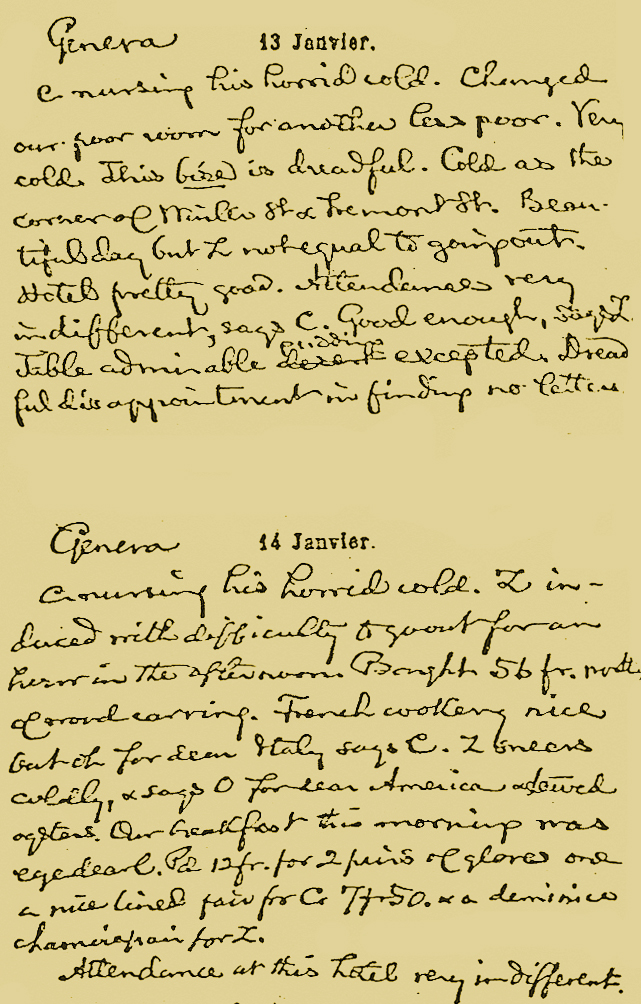 Geneva 13 Janvier.
C nursing his horrid cold. Changed
our poor room for another less poor. Very
cold. This bise is dreadful. Cold as the
corner of Winter St & Tremont St. Beau-
tiful day but Z not equal to going out.
Hotel pretty good. Attendance very
indifferent, says C. Good enough, says Z.
pudding
Table admirable desert excepted. Dread
ful disappointment in finding no letters
Geneva 14 Janvier.
C nursing his horrid cold. Z in-
duced with difficulty to go out for an
hour in the afternoon. Bought 56 fr. worth
of wood carving. French cookery nice
but oh for dear Italy says C. Z sneers
coldly, & says O for dear America & stewed
oysters. Our breakfast this morning was
eggs. Pd 12 fr. for 2 pairs of gloves one
a nice lined pair for C 7fr50. & a
pair for Z.
Attendance at this hotel very indifferent.